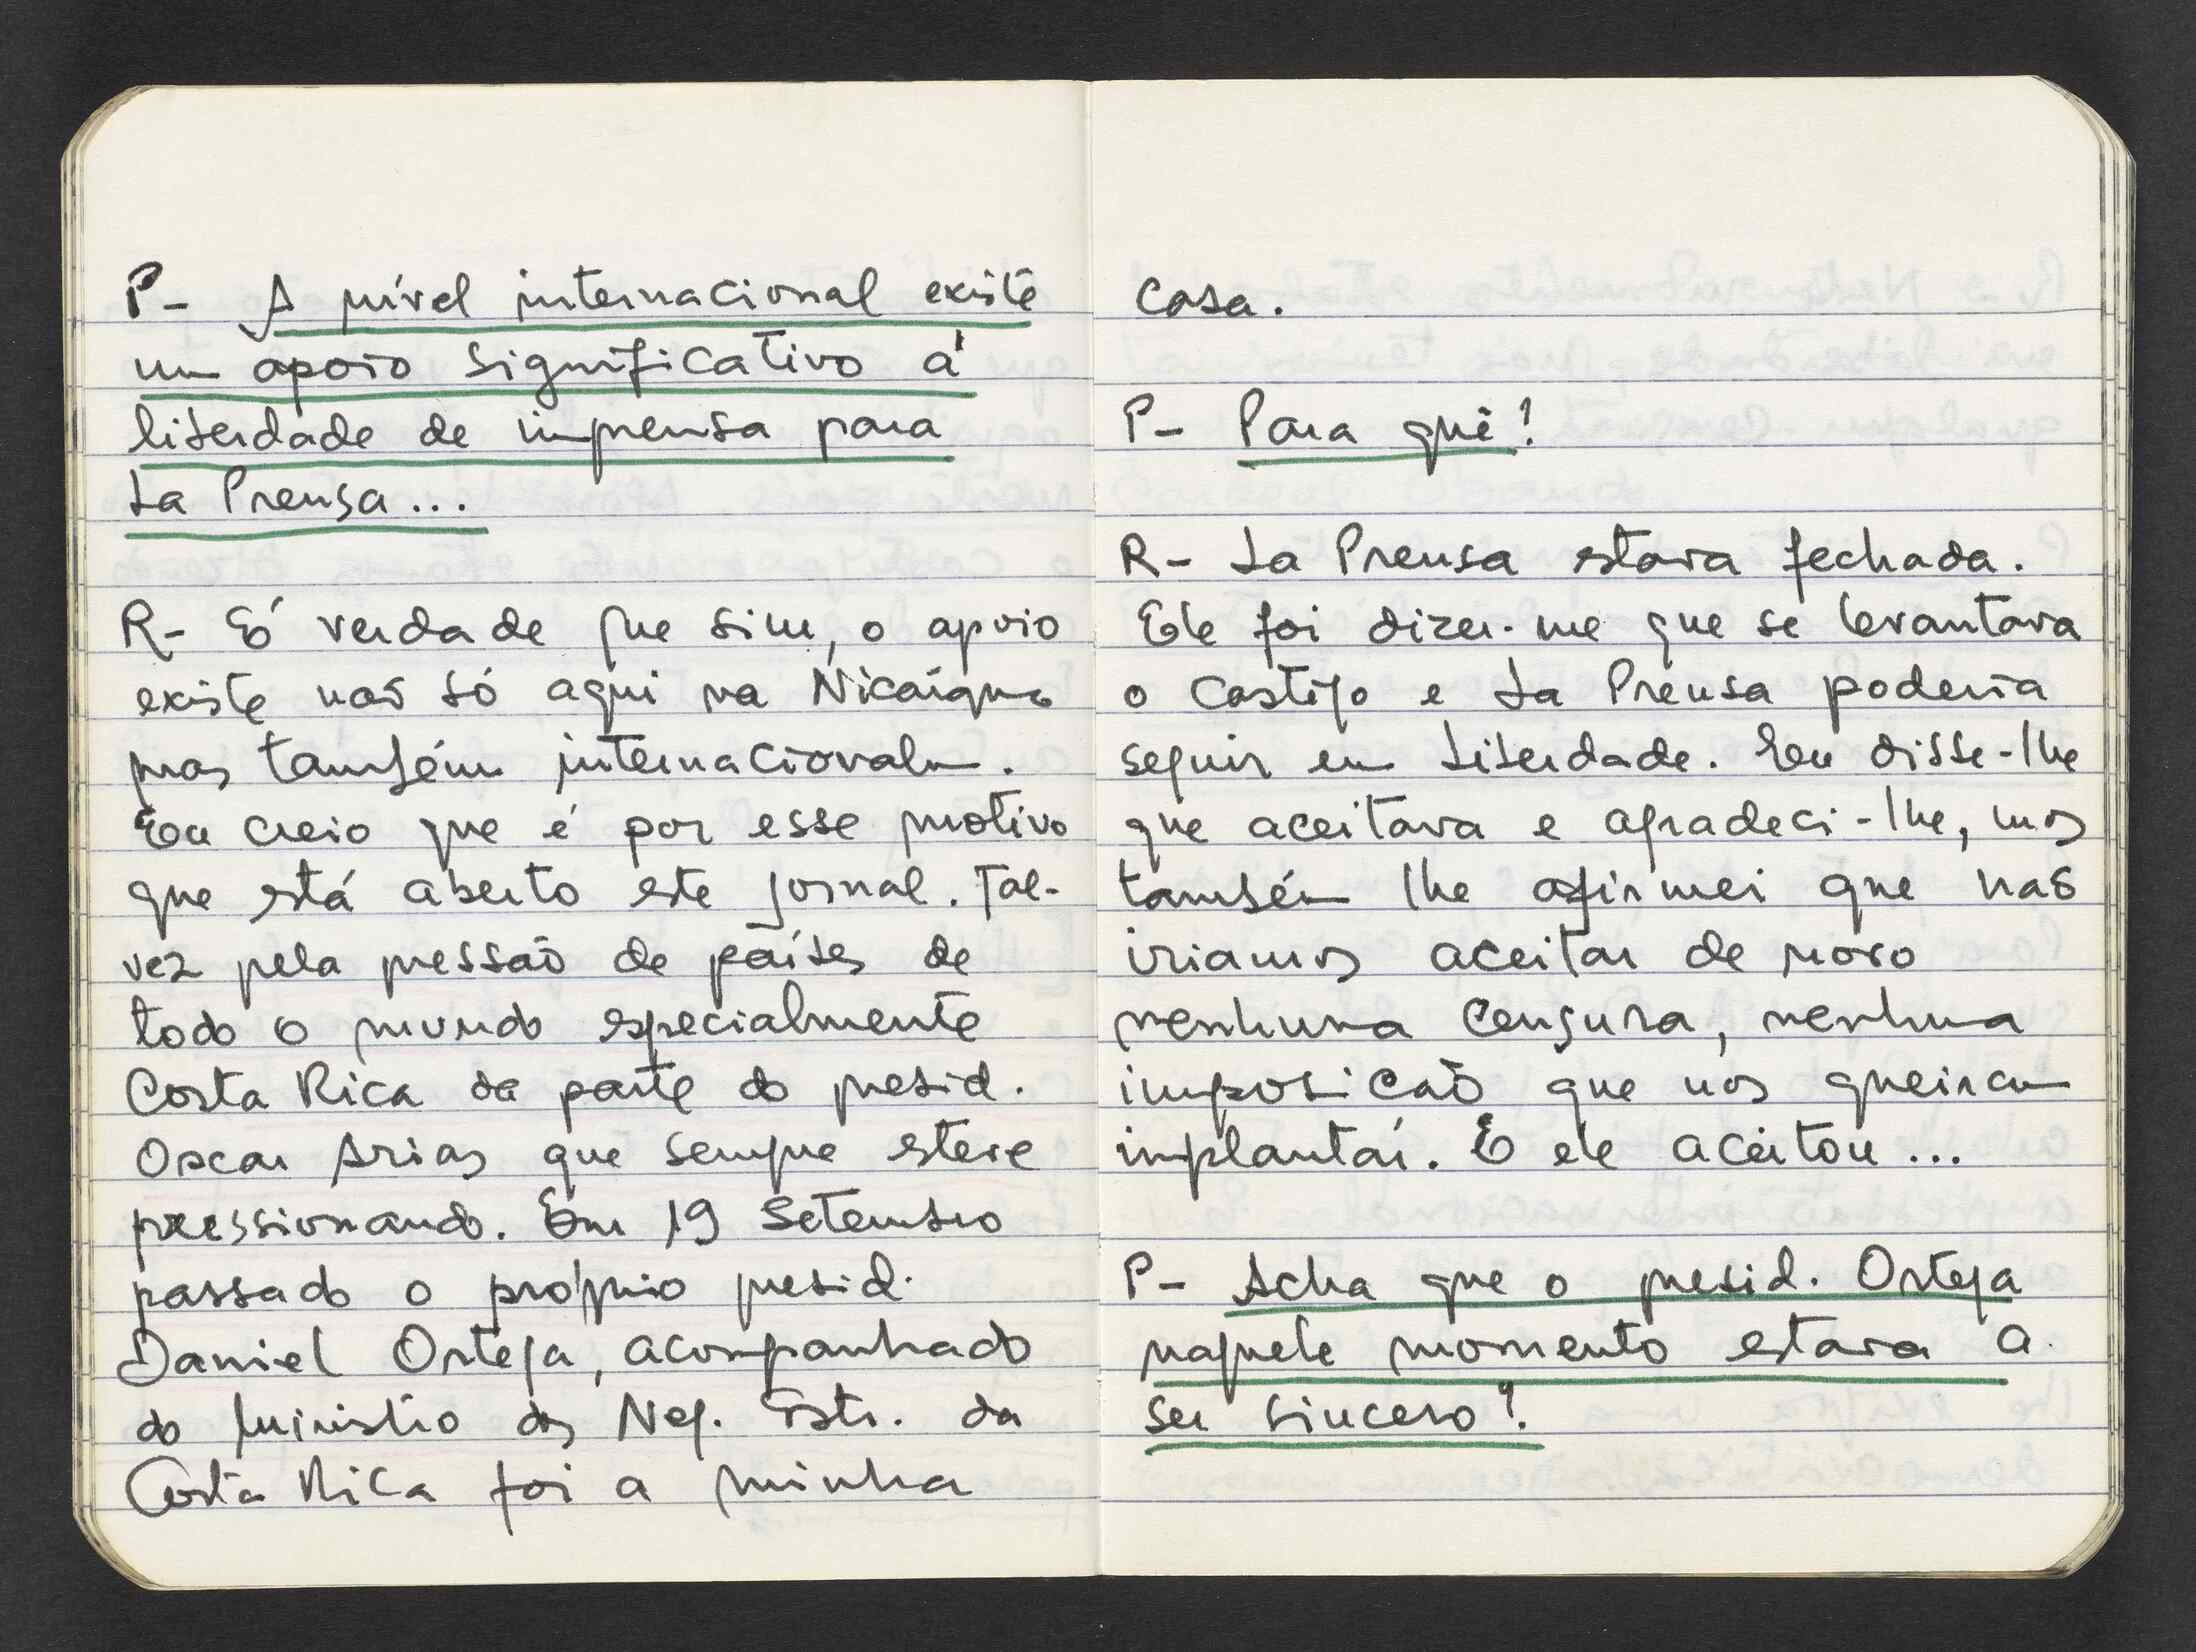 P- A nível internacional existe
um apoio significativo á
liberdade de imprensa para
La Prensa...
R- É verdade que sim, o apoio
existe não só aqui na Nicarágua
mas também internacionalm.
Eu creio que é por esse motivo
que está aberto este jornal. Tal-
vez pela pressão de países de
todo o mundo especialmente
Costa Rica da parte do presid.
Oscar Arias que sempre esteve
pressionando. Em 19 Setembro
passado o próprio presid.
Daniel Ortega, acompanhado
do Ministro dos Neg. Estr. da
Costa Rica foi a minha
casa.
P- Para quê?
R- La Prensa estava fechada.
Ele foi dizer-me que se levantava
o castigo e La Prensa poderia
seguir em Liberdade. Eu disse-lhe
que aceitava e agradeci-lhe, mas
também lhe afirmei que não
iriamos aceitar de novo
nenhuma censura, nenhuma
imposicão que nos queiram
implantar. E ele aceitou...
P- Acha que o presid. Ortega
naquele momento estava a
ser sincero?